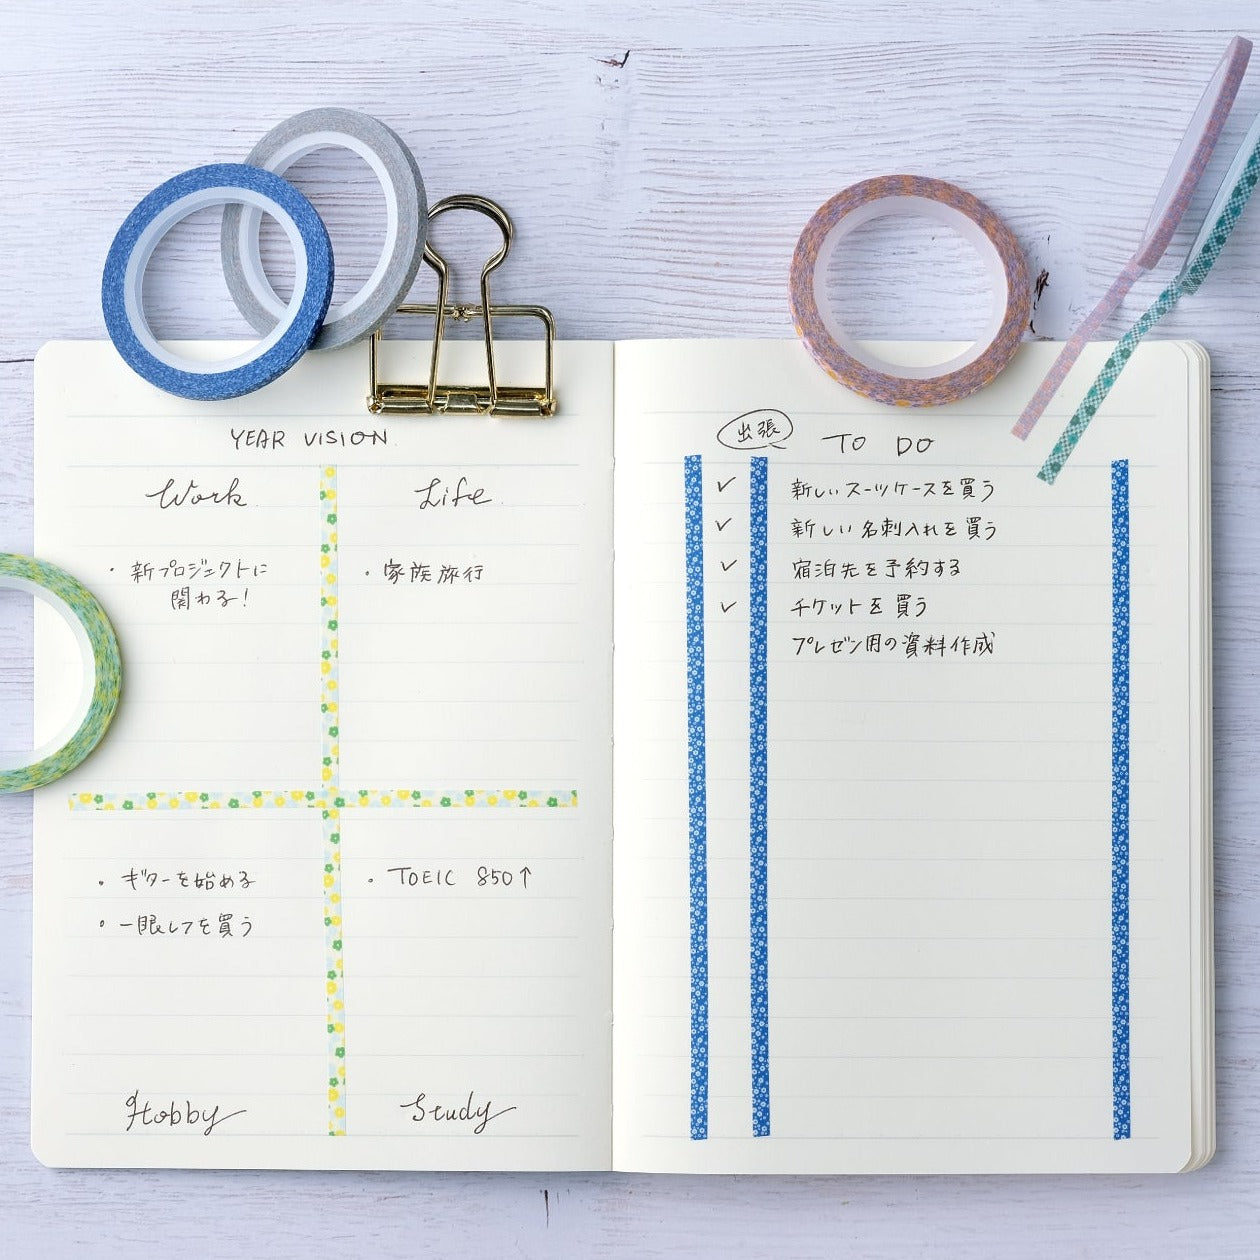 YEAR VISION
Work
・新プロジェクトに
関わる!
Life
・家族旅行
・ギターを始める
・一眼レフを買う
Hobby
・TOEIC 850↑
Study
出張 TO DO
✓ 新しいスーツケースを買う
✓ 新しい名刺入れを買う
✓ 宿泊先を予約する
✓ チケットを買う
プレゼン用の資料作成